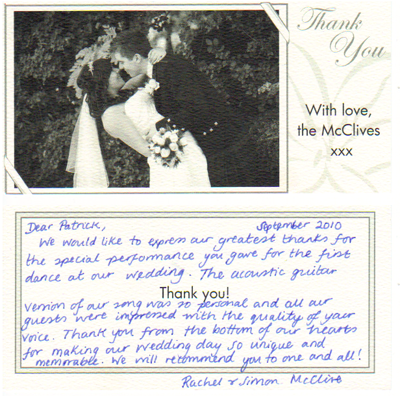 Thank
You
With love,
the McClives
xxx
Dear Patrick, September 2010
We would like to express our greatest thanks for
the special performance you gave for the first
dance at our wedding. The acoustic guitar
Thank you!
version of our song was so personal and all our
guests were impressed with the quality of your
voice. Thank you from the bottom of our hearts
for making our wedding day so unique and
memorable. We will recommend you to one and all!
Rachel & Simon McClive